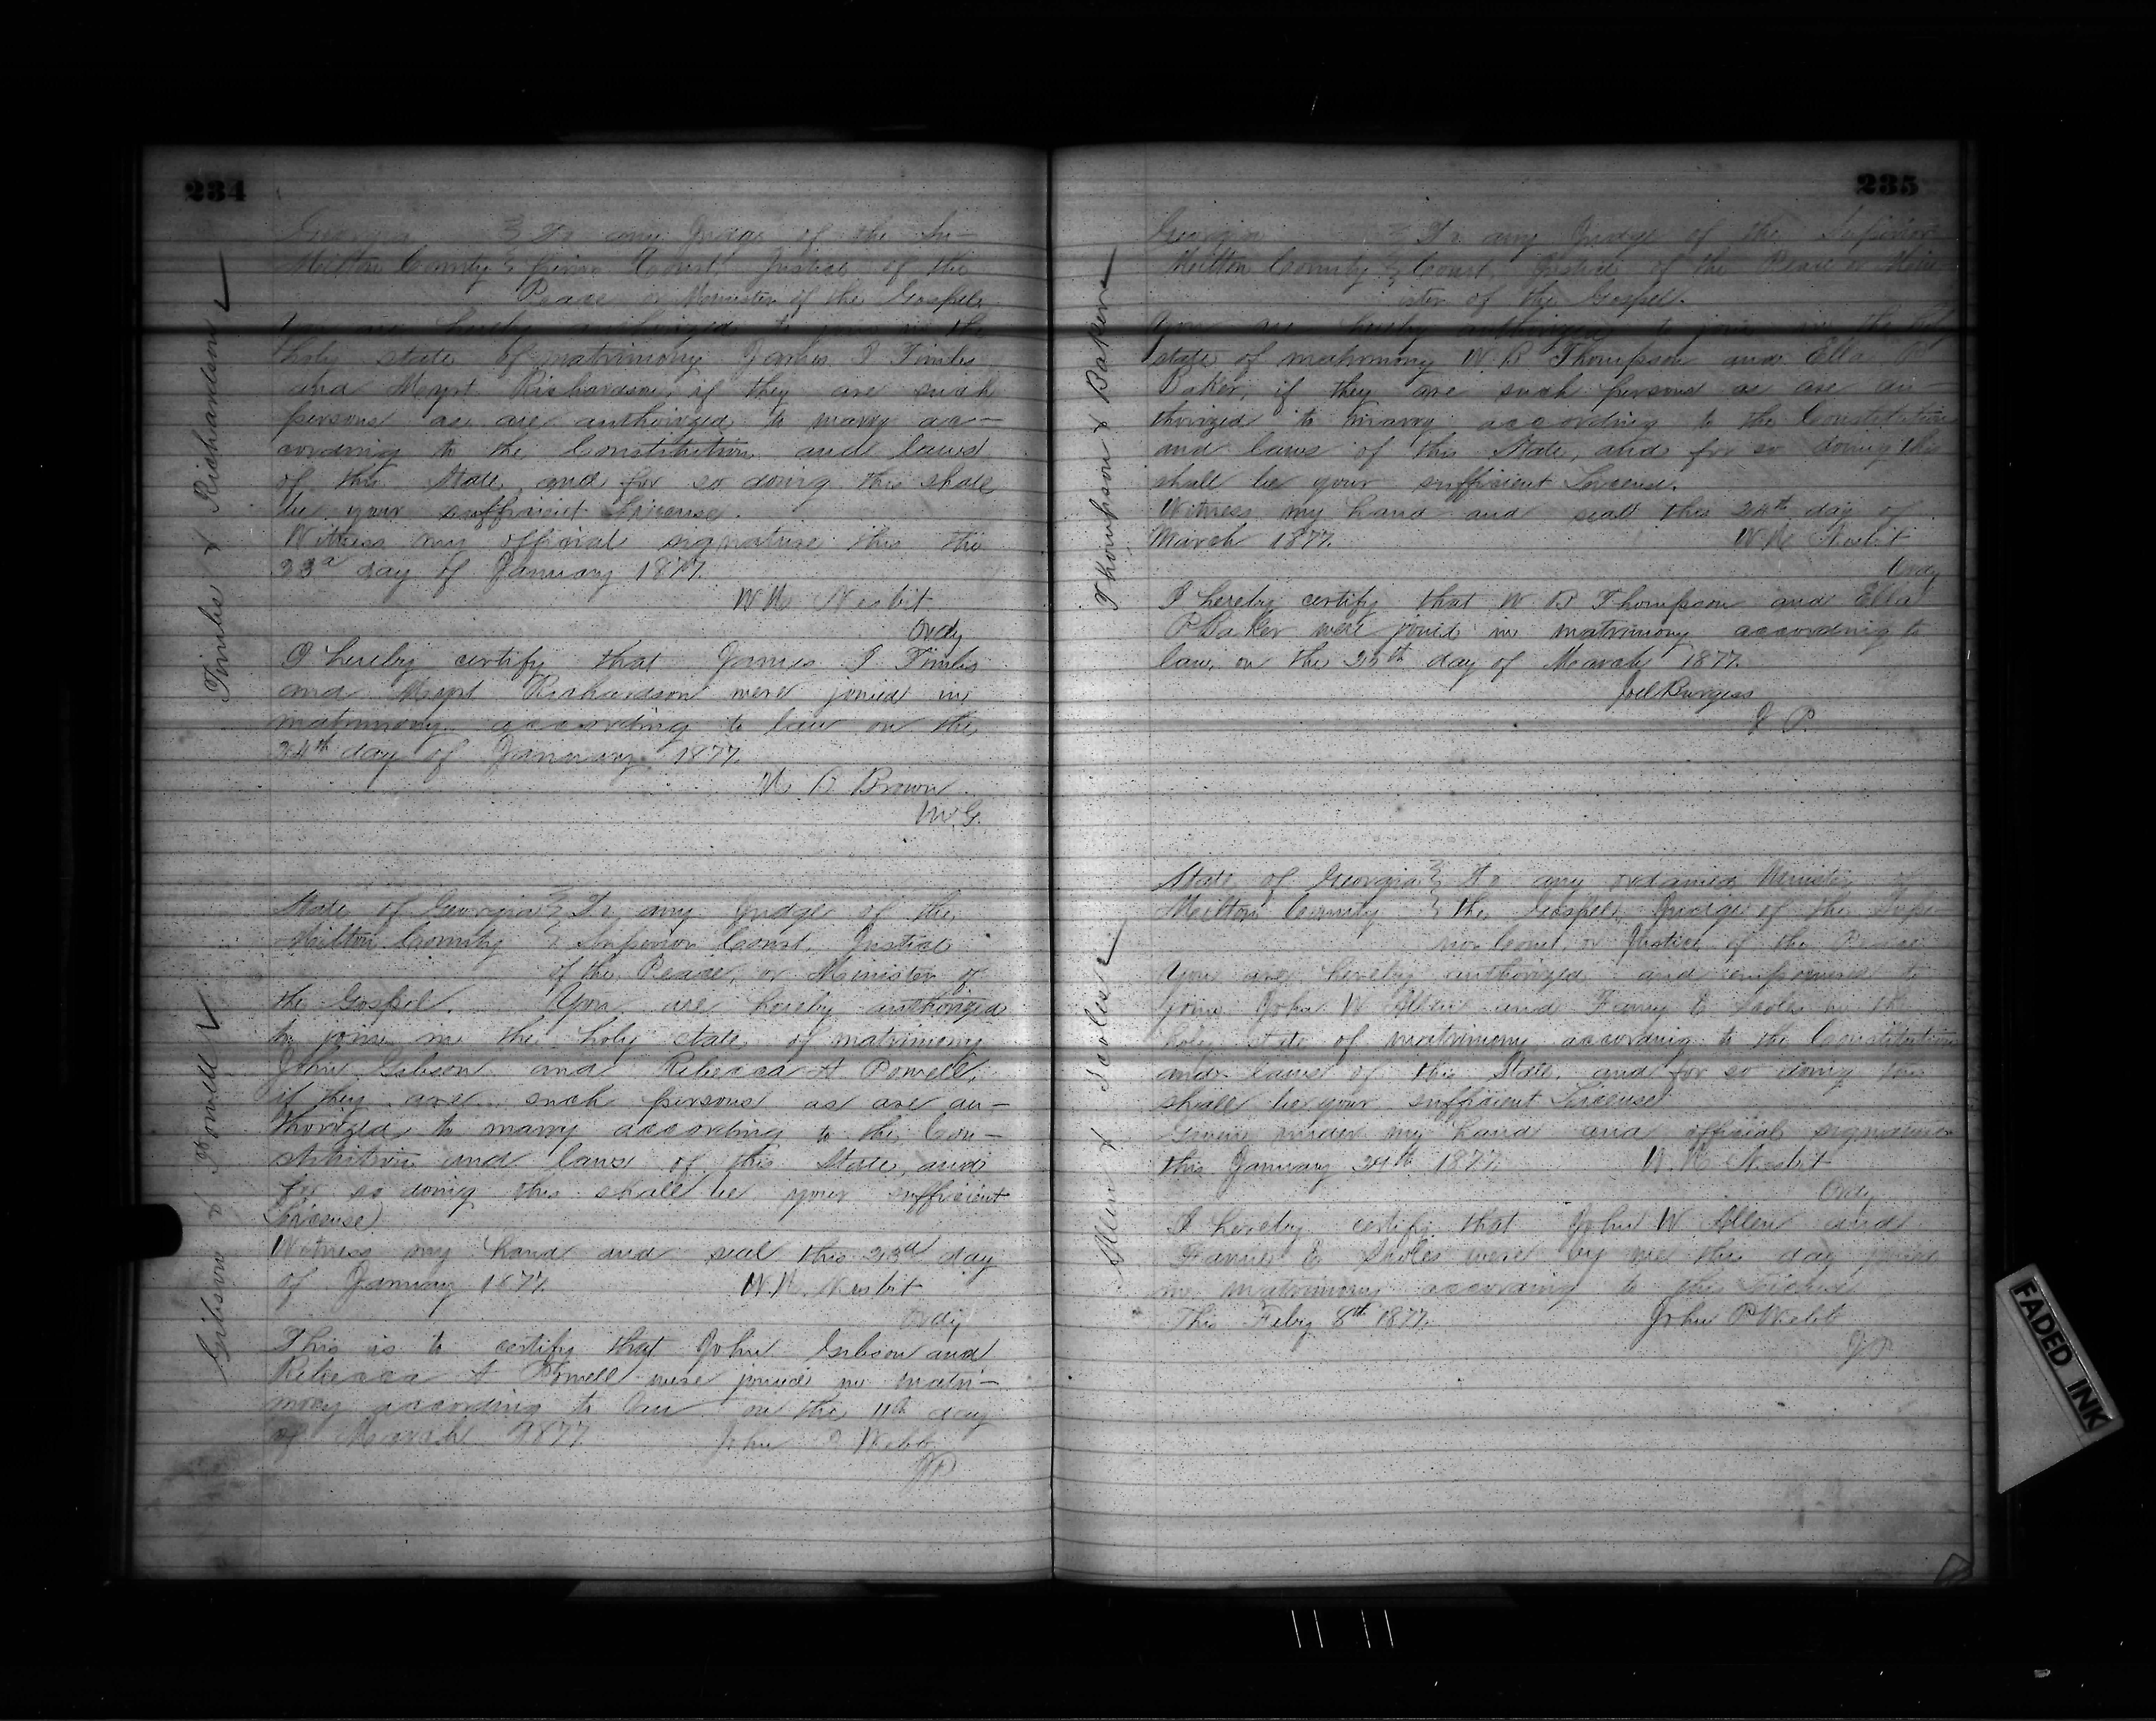 234
Georgia } To any Judge of the Su-
Milton County } perior Court, Justice of the
Peace or Minister of the Gospel.
You are hereby authorized to join in the
holy state of matrimony James I Timbs
and Margt Richardson, if they are such
persons as are authorized to marry ac-
cording to the Constitution and laws
of this State, and for so doing this shall
be your sufficient License.
Witness my official signature this the
23d day of January 1877.
W N Nesbit
Ordy
I hereby certify that James I Timbs
and Margt Richardson were joined in
matrimony according to law on the
24th day of January 1877.
Brown
M.G.
Timbs & Richardson
State of Georgia } To any Judge of the
Milton County } Superior Court, Justice
of the Peace, or Minister of
the Gospel. You are hereby authorized
to join in the holy state of matrimony
John Gibson and Rebecca A Powell,
if they are such persons as are au-
thorized to marry according to the Con-
stitution and laws of this State, and
for so doing this shall be your sufficient
License
Witness my hand and seal this 23d day
of January 1877. W.N. Nesbit
Ordy
This is to certify that John Gibson and
Rebecca A Powell were joined in matri-
mony according to law on the 11th day
of March 1877 John P Webb
JP
Gibson & Powell
235
Georgia } To any Judge of the Superior
Milton County } Court, Justice of the Peace or Min-
ister of the Gospel.
You are hereby authorized to join in the holy
state of matrimony W B Thompson and Ella P
Baker, if they are such persons as are au-
thorized to marry according to the Constitution
and laws of this State, and for so doing this
shall be your sufficient License.
Witness my hand and seal this 24th day of
March 1877. W N Nesbit
Ordy
I hereby certify that W B Thompson and Ella
P Baker were joined in matrimony according to
law on the 25th day of March 1877.
Joel Burgess
J P.
Thompson & Baker
State of Georgia } To any ordained Minister
Milton County } the Gospel, Judge of the Supe
rior Court, or Justice of the Peace
You are hereby authorized and empowered to
join John W Allen and Fanny E Scoles in the
holy state of matrimony according to the Constitution
and laws of this State, and for so doing this
shall be your sufficient License
Given under my hand and official signature
this January 24th 1877 W.N. Nesbit
Ordy
I hereby certify that John W Allen and
Fannie E Scoles were by me this day joined
in matrimony according to this License
This Feby 8th 1877. John P Webb
JP
Allen & Scoles
FADED INK